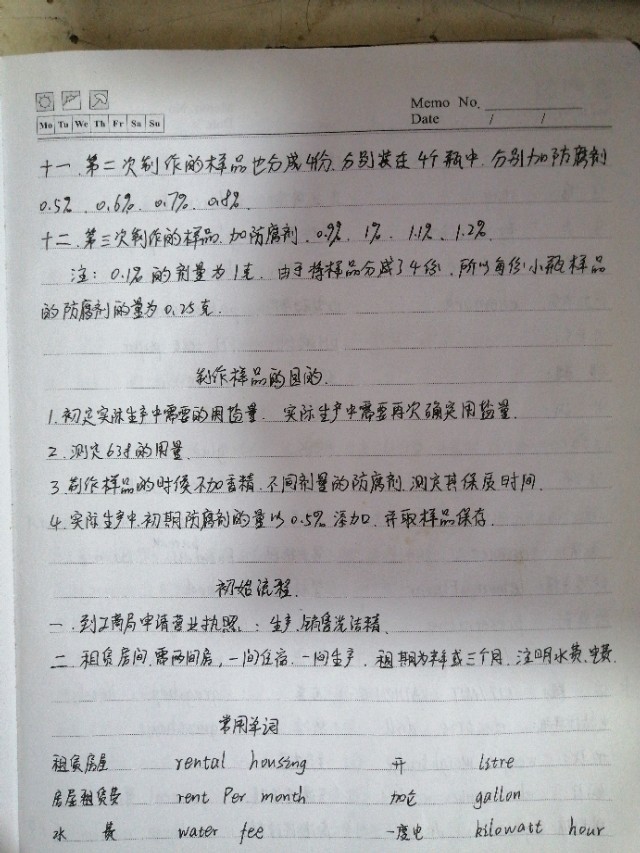 Memo No.
Mo Tu We Th Fr Sa Su
Date / /
十一.第二次制作的样品也分成4份.分别装在4个瓶中.分别加防腐剂
0.5% . 0.6% . 0.7% . 0.8% .
十二.第三次制作的样品.加防腐剂. 0.9% . 1% . 1.1% . 1.2% .
注: 0.1%的剂量为1克. 由于将样品分成了4份.所以每份小瓶样品
的防腐剂的量为0.25克.
制作样品的目的.
1.初定实际生产中需要的用盐量. 实际生产中需要再次确定用盐量.
2.测定638的用量
3.制作样品的时候不加香精.不同剂量的防腐剂.测定其保质时间.
4.实际生产中.初期防腐剂的量以0.5%添加.并取样品保存.
初始流程.
一.到工商局申请营业执照.:生产.销售洗洁精.
二.租赁房间.需两间房,一间住宿.一间生产.租期为半年或三个月.注明水费.电费.
常用单词
租赁房屋 rental housing 升 litre
房屋租赁费 rent Per month 加仑 gallon
水 费 water fee 一度电 kilowatt hour